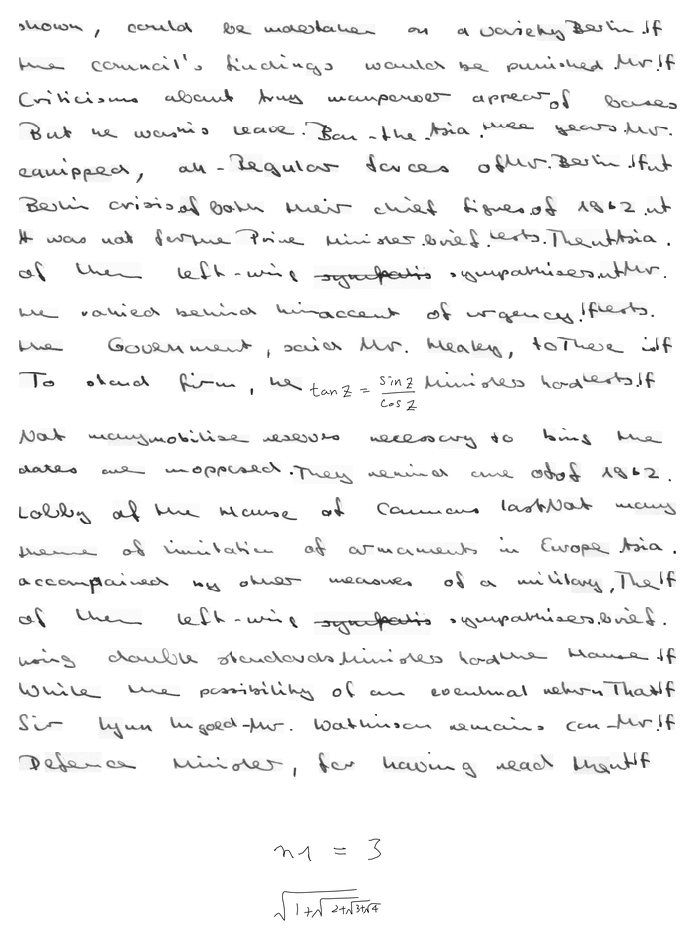 shown, could be undertaken on a variety Berlin.If
the council's findings would be punished.Mr.If
Criticisms about Army manpower appear of bases
But he was his leave. Ban-the.Asia. three years.Mr.
equipped, all-Regular forces of Mr. Berlin.If ut
Berlin crisis of both their chief figures of 1962 ut
It was not for the Prime Minister brief. tests. The ut Asia.
of them left-wing sympathisers ut Mr.
He rallied behind him accent of urgency.If tests.
the Government, said Mr. Healey, to These is If
To stand firm, he tan z = \frac{sin z}{cos z} Ministers hard tests.If
Not many mobilise reserves necessary to bring the
dates are unopposed. They remind one of of 1962.
Lobby of the House of Commons last Not many
theme of limitation of armaments in Europe Asia.
accompanied by other measures of a military, The If
of them left-wing sympathisers brief.
using double standards Ministers hard the House If
While the possibility of an eventual return That If
Sir Lynn Ungoed-Mr. Watkinson remains can-Mr.If
Defence Minister, for having read them If
n1 = 3
\sqrt{1+\sqrt{2+\sqrt{3+\sqrt{4}}}}